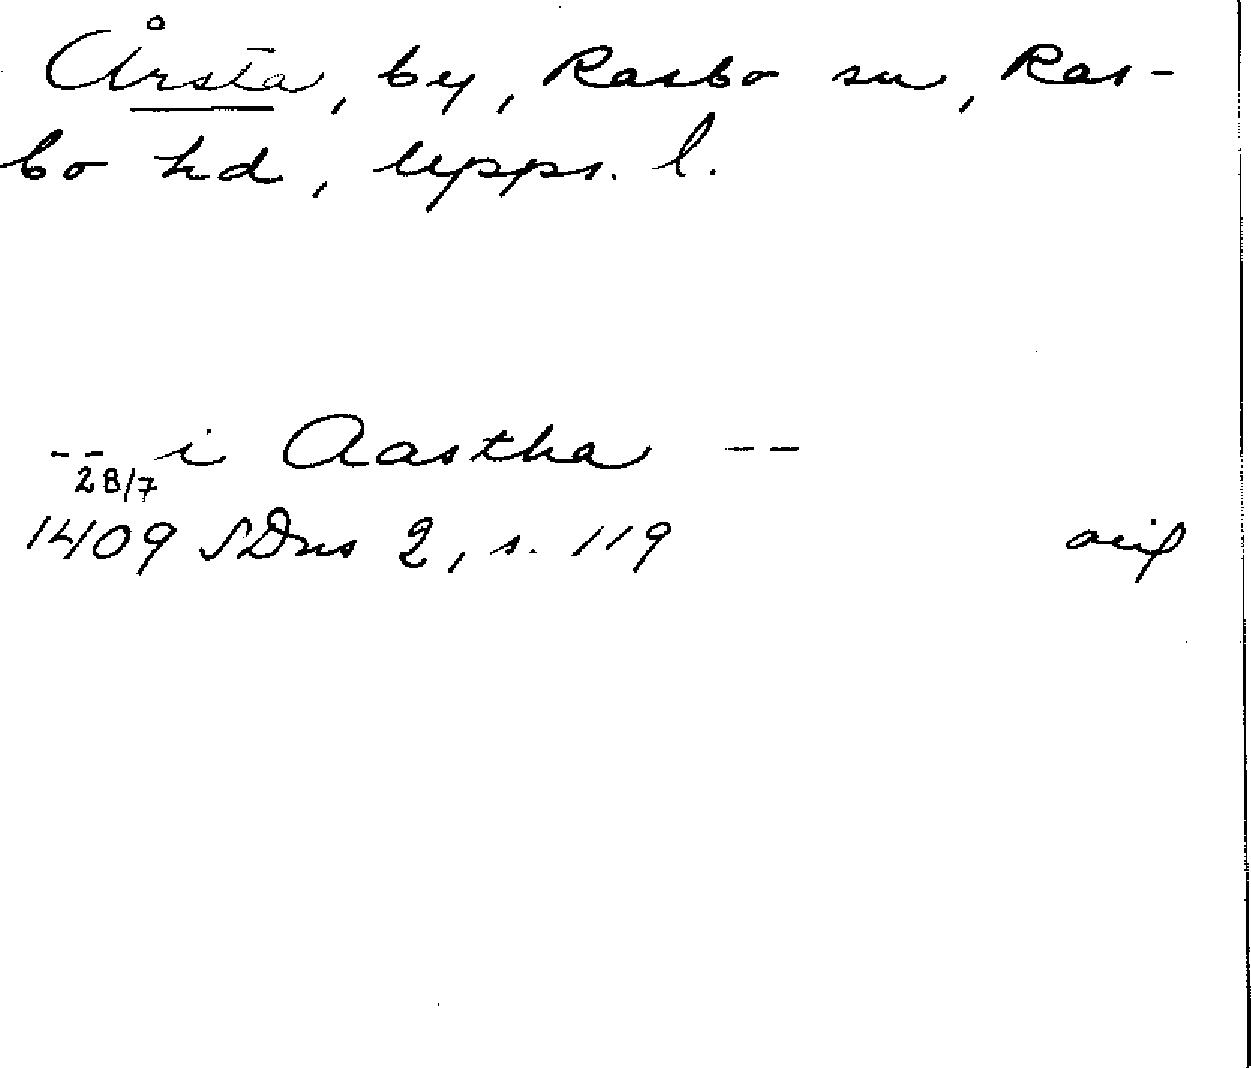 Årsta, by, Rasbo sn, Ras-
bo hd, Upps. l.
-- i Aastha --
28/7
1409 SDns 2, s. 119